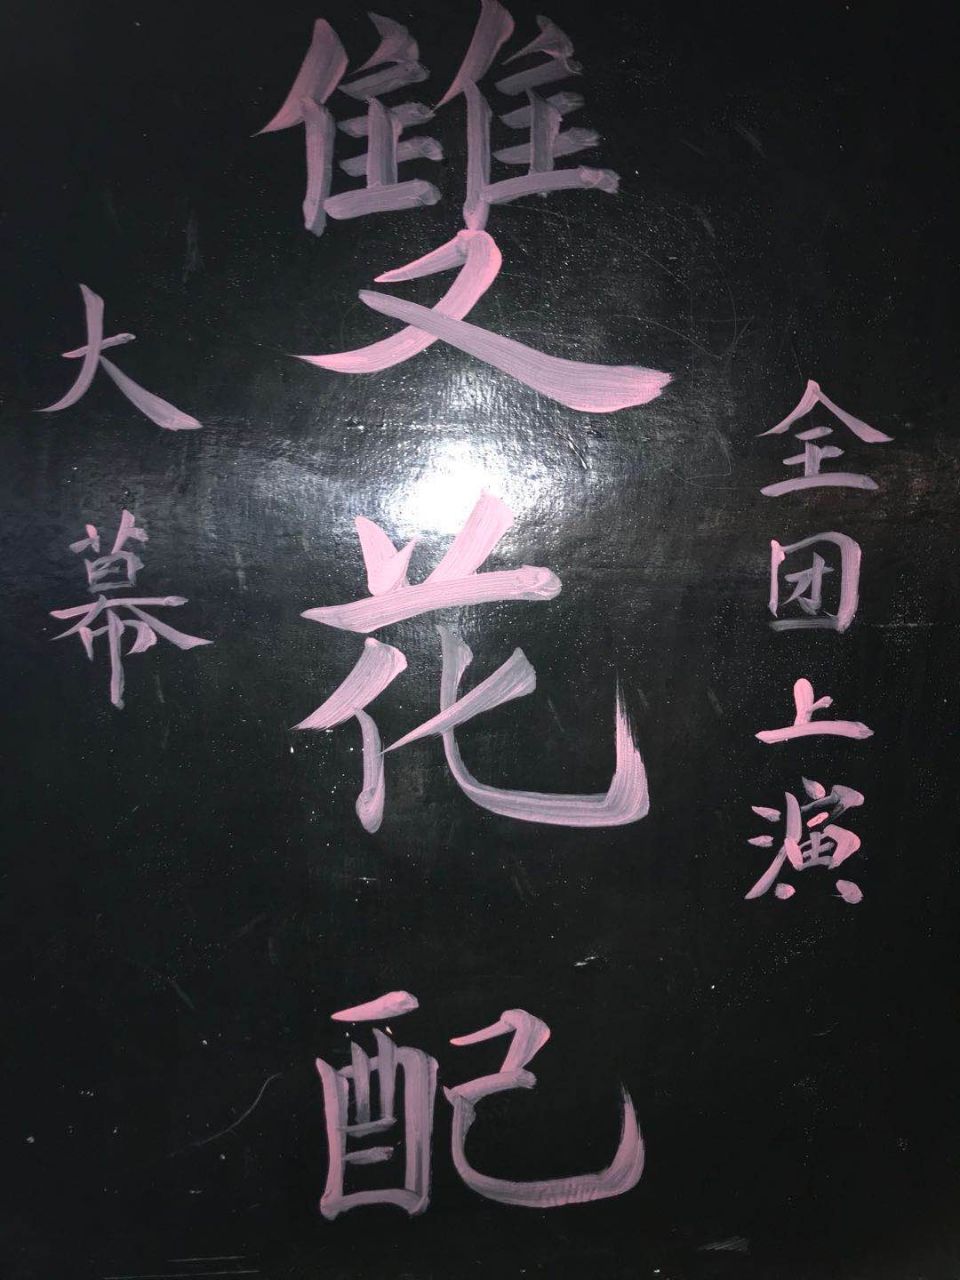 全团上演
雙花配
大幕